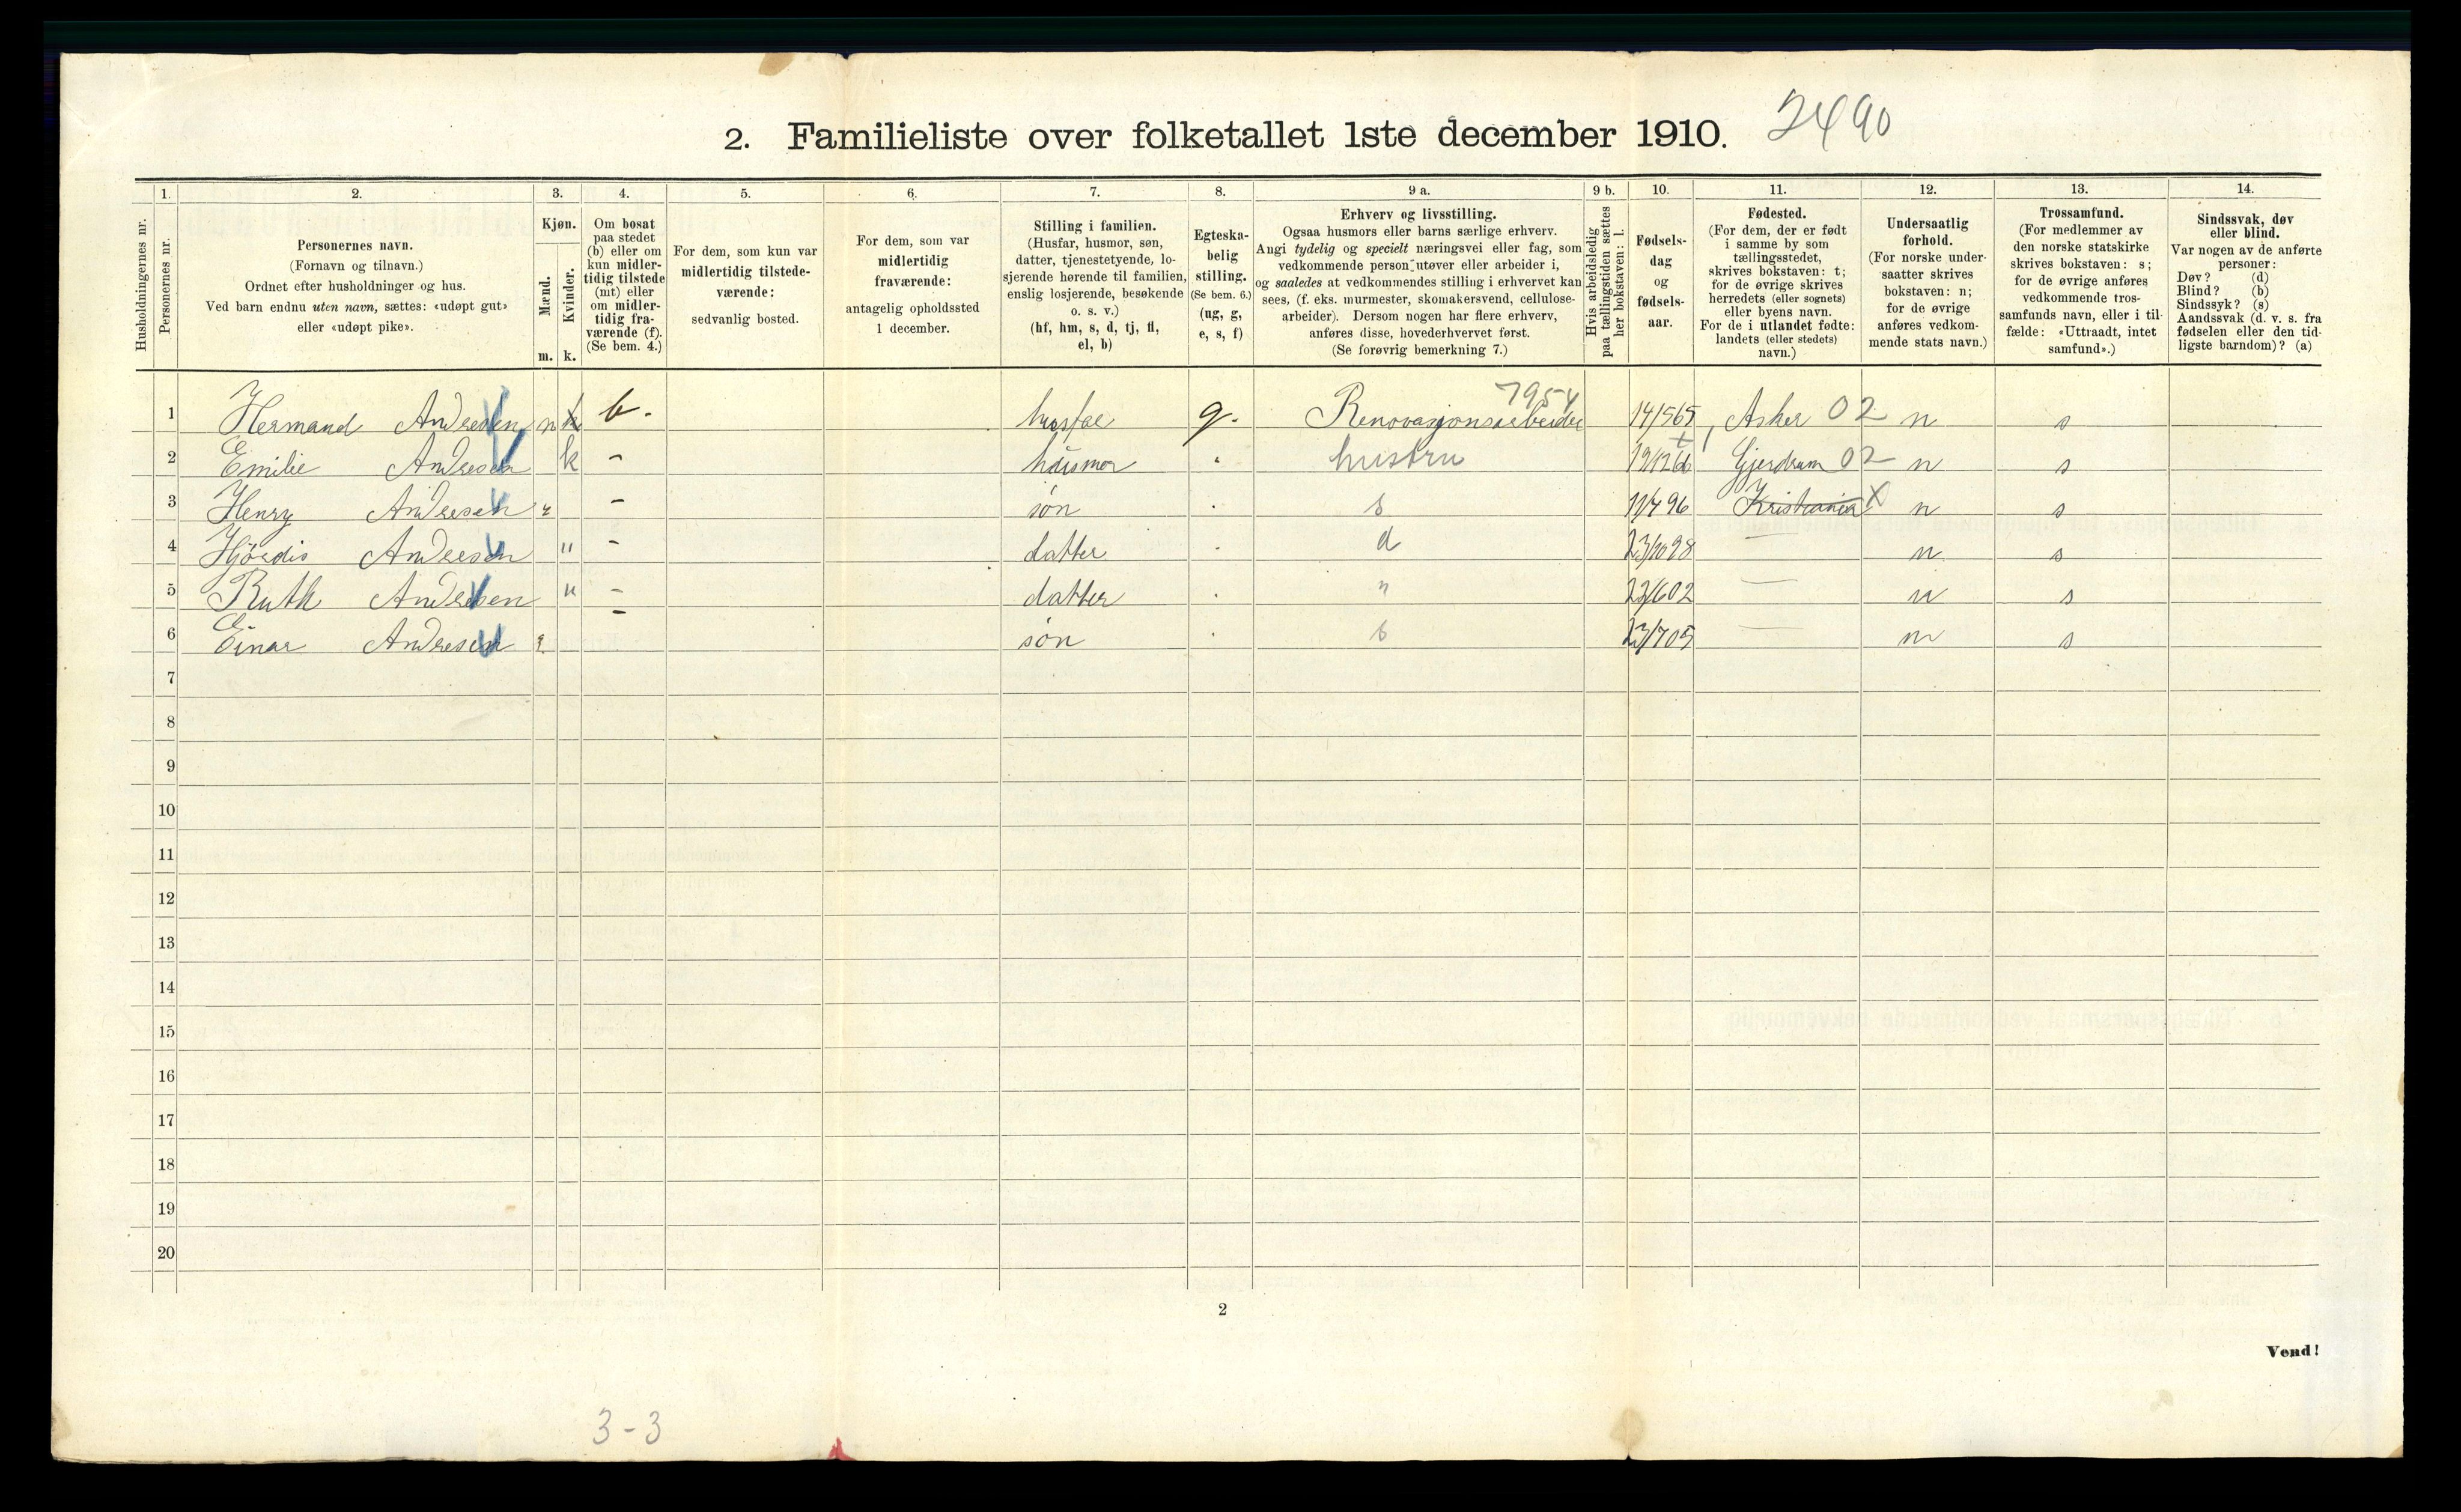 2. Familieliste over folketallet 1ste december 1910. 2490
1. 2. 3. 4. 5. 6. 7. 8. 9 a. 9 b. 10. 11. 12. 13. 14.
Husholdningernes nr.
Personernes nr.
Personernes navn.
(Fornavn og tilnavn.)
Ordnet efter husholdninger og hus.
Ved barn endnu uten navn, sættes: «udøpt gut»
eller «udøpt pike».
Kjøn.
Mænd.
Kvinder.
m. k.
Om bosat
paa stedet
(b) eller om
kun midler-
tidig tilstede
(mt) eller
om midler-
tidig fra-
værende (f).
(Se bem. 4.)
For dem, som kun var
midlertidig tilstede-
værende:
sedvanlig bosted.
For dem, som var
midlertidig
fraværende:
antagelig opholdssted
1 december.
Stilling i familien.
(Husfar, husmor, søn,
datter, tjenestetyende, lo-
sjerende hørende til familien,
enslig losjerende, besøkende
o. s. v.)
(hf, hm, s, d, tj, fl,
el, b)
Egteska-
belig
stilling.
(Se bem. 6.)
(ug, g,
e, s, f)
Erhverv og livsstilling.
Ogsaa husmors eller barns særlige erhverv.
Angi tydelig og specielt næringsvei eller fag, som
vedkommende person utøver eller arbeider i,
og saaledes at vedkommendes stilling i erhvervet kan
sees, (f. eks. murmester, skomakersvend, cellulose-
arbeider). Dersom nogen har flere erhverv,
anføres disse, hovederhvervet først.
(Se forøvrig bemerkning 7.)
Hvis arbeidsledig
paa tællingstiden sættes
her bokstaven: l.
Fødsels-
dag
og
fødsels-
aar.
Fødested.
(For dem, der er født
i samme by som
tællingsstedet,
skrives bokstaven: t;
for de øvrige skrives
herredets (eller sognets)
eller byens navn.
For de i utlandet fødte:
landets (eller stedets)
navn.)
Undersaatlig
forhold.
(For norske under-
saatter skrives
bokstaven: n;
for de øvrige
anføres vedkom-
mende stats navn.)
Trossamfund.
(For medlemmer av
den norske statskirke
skrives bokstaven: s;
for de øvrige anføres
vedkommende tros-
samfunds navn, eller i til-
fælde: «Uttraadt, intet
samfund».)
Sindssvak, døv
eller blind.
Var nogen av de anførte
personer:
Døv? (d)
Blind? (b)
Sindssyk? (s)
Aandssvak (d. v. s. fra
fødselen eller den tid-
ligste barndom)? (a)
7954
1 Hermand Andresen m k b. husfar g. Renovasjonsarbeider 14/5 65 Asker 02 n s
2 Emilie Andresen k - husmor " hustru 19/12 66 Gjerdrum 02 n s
3 Henry Andresen " - søn " s 11/7 96 Kristiania X n s
4 Hjørdis Andresen " - datter " d 23/10 98 — n s
5 Ruth Andresen " - datter " " 22/6 02 — n s
6 Einar Andresen " - søn " s 23/7 05 — n s
7
8
9
10
11
12
13
14
15
16
17
18
19
20
2
Vend!
3-3